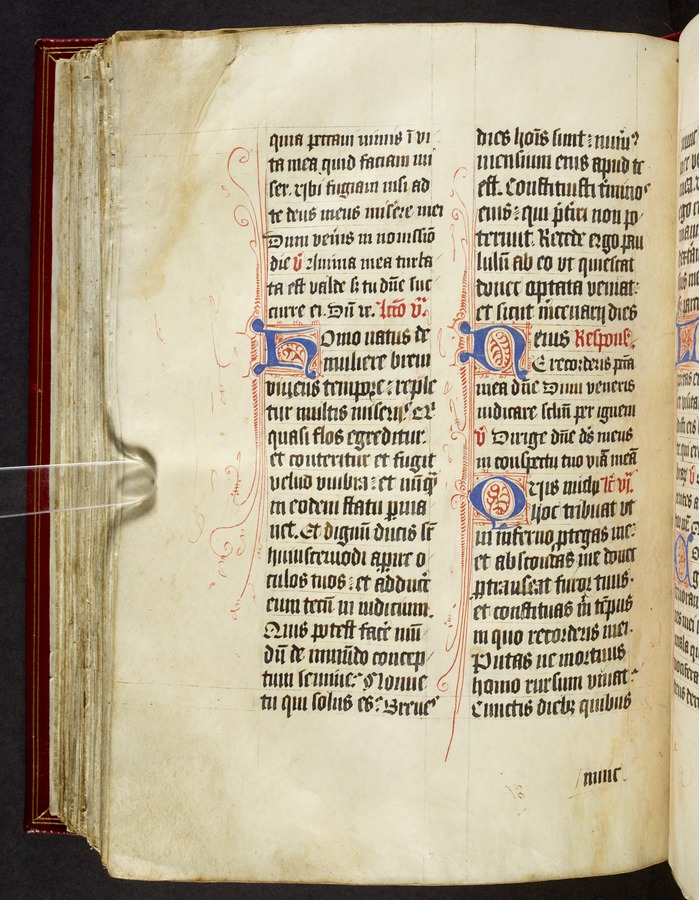 quia peccaui nimis ī vi
ta mea quid faciam mi
ser. vbi fugiam nisi ad
te deus meus miserē mei
Dum veīus in nouissīo
die v̄ Anima mea turba
ta est valde s; tu dn̄e suc
curre ei. Dū ve. lcc̄o v̄.
Homo natus de
muliere breui
viuens tempore: reple
tur multis miserijs Q̄
quasi flos egreditur.
et conteritur et fugit
velud vmbra: et nūq̄
in eodem statu perma
net. Et dignū ducis sr̄
huiuscemodi apire o
culos tuos: et adduce
eum tecū in iudicium.
Quis potest facē mū
dū de immūdo concep
tum semine? Nonne
tu qui solus es? Breues
dies hoīs sunt: numer9
mensium eius apud te
est. Constituisti t̄mino
eius: qui p̄t̄iri non po
terunt. Recede ergo pau
lulū ab eo vt quiescat
donec optata veniat:
et sicut m̄cenarij dies
eius Respons.
Ne recorderis pc̄ta
mea dn̄e Dum veneris
iudicare sc̄lm̄ per ignem
v̄ Dirige dn̄e ds̄ meus
in conspectu tuo viā meā
Quis michi lc̄ vj.
hoc tribuat vt
in inferno ptegas me:
et abscondas me donec
ptranseat furor tuus.
et constituas m̄ tēpus
in quo recorderis mei.
Putas ne mortuus
homo rursum viuat:
Cunctis dieb; quibus
nunc